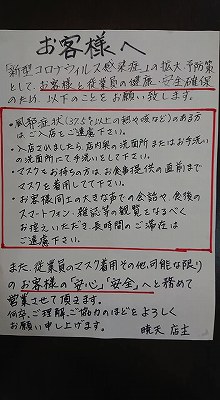 お客様へ
「新型コロナウィルス感染症」の拡大予防策
として、お客様と従業員の健康・安全確保
のため、以下のことをお願い致します。
・風邪症状(37.5℃以上の熱や咳など)のある方
はご入店をご遠慮下さい。
・入店されましたら店内奥の洗面所またはお手洗い
の洗面所にて手洗いをして下さい。
・マスクをお持ちの方は、お食事提供の直前まで
マスクを着用してて下さい。
・お客様同士の大きな声での会話や、食後の
スマートフォン、雑誌等の観覧をなるべく
お控えいただき、長時間のご滞在は
ご遠慮下さい。
また、従業員のマスク着用その他、可能な限り
のお客様の「安心」「安全」へと務めて
営業させて頂きます。
何卒、ご理解、ご協力のほどをよろしく
お願い申し上げます。
暁天 店主